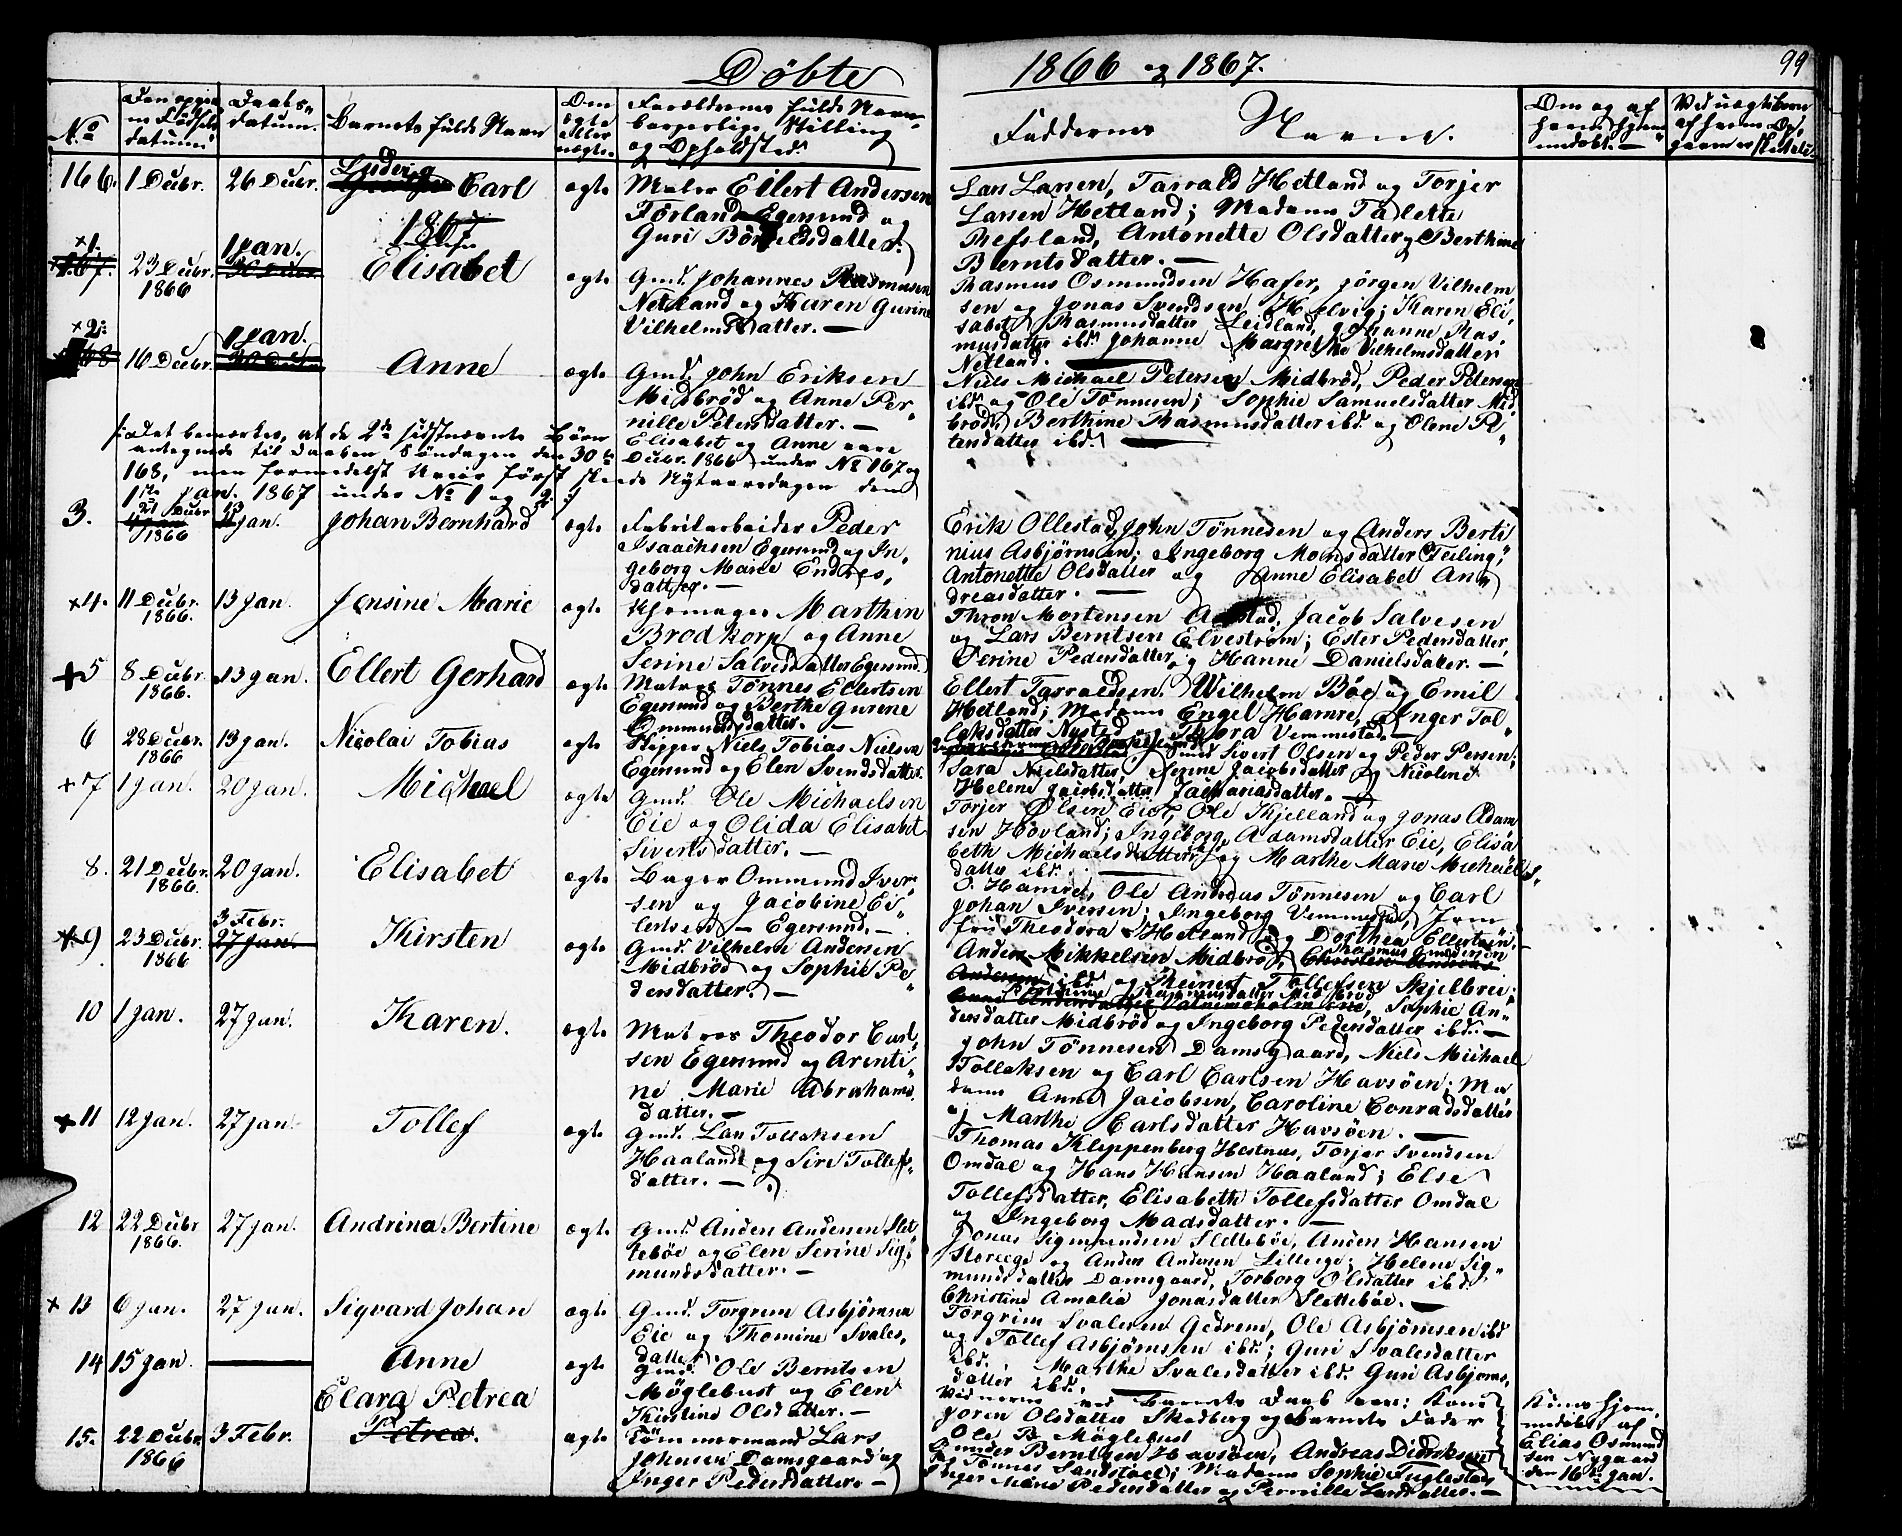 Döbte 1866 og 1867. 99
No
Den opgivne Födsels datum.
Daabs- datum.
Barnets fulde Navn
Om ægte eller uægte.
Forældrenes fulde Navn borgerlige Stilling og Opholdsted.
Faddernes Navne.
Om og af hvem hjemmedöbt. —
166. 1 Decbr. 26 Decbr. Ludvig Carl ægte Maler Eilert Andersen
Förland Egersund og
Guri Börjelsdatter.
Lars Larsen, Tarrald Hetland og Torjer
Larsen Hetland; Madame Talette
Refsland, Antonette Olsdatter og Berthine
Berntsdatter. —
1867
+1. 167. 23 Decbr. 1866 1 Jan. 30 Decbr. Elisabet ægte Gmd. Johannes Rasmusen
Netland og Karen Gurine
Vilhelmsdatter. —
Rasmus Osmundsen Hafer, Jörgen Vilhelm
sen og Jonas Svendsen Helvig; Karen Eli,
sabet Rasmusdatter Leidland, Johanne Ras,
musdatter ibd. Johanne Margrethe Vilhelmsdatter
Netland. —
+2. 168 16 Decbr. 1 Jan. 30 Decbr. Anne ægte Gmd. John Eriksen
Midbröd og Anne Per,
nille Petersdatter. —
Niels Michael Petersen Midbröd, Peder Petersen
ibd. og Ole Tönnesen; Sophie Samuelsdatter Mid,
bröd, Berthine Rasmusdatter ibd. og Olene Pe,
tersdatter ibd. —
Det bemærkes, at de 2de sidstnævnte Börn Elisabet og Anne vare
antegnede til Daaben Söndagen den 30te Decbr. 1866 under No 167 og
168, men formedelst Uveir först skede Nytaarsdagen den
1ste Jan. 1867 under No 1 og 2.
3. 31 Decbr 1866 13 Jan. Johan Bernhard ægte Fabrikarbeider Peder
Isaachsen Egersund og In,
geborg Marie Endres,
datter. —
Erik Ollestad, John Tönnesen og Anders Berti
nius Asbjörnsen; Ingeborg Monsdatter Teiling,
Antonette Olsdatter og Anne Elisabet An,
dreasdatter. —
+4. 11 Decbr. 1866. 13 Jan. Jensine Marie ægte Uhrmager Marthin
Brodkorp og Anne
Serine Salvesdatter Egersund.
Thron Mortensen Aarstad, Jacob Salvesen
og Lars Berntsen Elveström; Ester Pedersdatter,
Serine Pedersdatter og Hanne Danielsdatter. —
+5 8 Decbr. 1866. 13 Jan. Ellert Gerhard ægte Matros Tönnes Ellertsen
Egersund og Berthe Gurine
Ommundsdatter. —
Ellert Tarraldsen, Wilhelm Böe og Emil
Hetland; Madame Engel Hamre, Inger Tol,
laksdatter Nysted, Thora Vemmestad. —
6 28 Decbr. 1866 13 Jan. Nicolai Tobias ægte Skipper Niels Tobias Nielsen
Egersund og Elen Svendsdatter.
Sivert Olsen og Peder Persen;
Sara Nielsdatter, Serine Jacobsdatter og Nicoline
Helene Jacobsdatter
+7 1 Jan. 20 Jan. Michael ægte Gmd. Ole Michaelsen
Eie og Olida Elisabet
Sivertsdatter. —
Torjer Olsen Eie, Ole Kjelland og Jonas Adam
sen Hovland; Ingeborg Adamsdatter Eie, Elisa
beth Michaelsdatter og Marthe Marie Michaels,
datter ibd. —
8. 21 Decbr. 1866. 20 Jan. Elisabet ægte Bager Ommund Iver,
sen og Jacobine Ei,
lertsen — Egersund. —
O. Hamre, Ole Andreas Tönnesen og Carl
Johan Iversen; Ingeborg Vemmestad, Jom
fru Theodora Hetland og Dorthea Ellertsen.
+9 23 Decbr. 1866 3 Febr. 27 Jan. Kirsten ægte Gmd. Vilhelm Andersen
Midbröd og Sophie Pe,
dersdatter. —
Anders Mikkelsen Midbröd, Rasmus
og Reinert Tollefsen Skjelbrei;
Rasmusdatter Midbröd, Sophie An,
dersdatter Midbröd og Ingeborg Pedersdatter ibd. —
10 1 Jan. 27 Jan. Karen. ægte Matros Theodor Carl,
sen Egersund og Arenti,
ne Marie Abrahams
datter. —
John Tönnesen Damsgaard, Niels Michael
Tollaksen og Carl Carlsen Havsöen; Ma
dame Anne Jacobsen, Caroline Conradsdatter
og Marthe Carlsdatter Havsöen. —
+11 12 Jan. 27 Jan. Tollef ægte Gmd. Lars Tollaksen
Haaland og Siri Tollefs,
datter. —
Thomas Kleppenberg Hestnes, Torjer Svendsen
Omdal og Hans Hansen Haaland; Else
Tollefsdatter, Elisabeth Tollefsdatter Omdal
og Ingeborg Madsdatter. —
12 22 Decbr 1866. 27 Jan. Andrina Bertine ægte Gmd. Anders Andersen Slet
teböe og Elen Serine Sig,
mundsdatter. —
Jonas Sigmundsen Sletteböe, Anders Hansen
Storeege og Anders Andersen Lilleege; Helene Sig,
mundsdatter Damsgaard, Torborg Olsdatter ibd.
Christine Amalia Jonasdatter Sletteböe. —
+ 13 6 Jan. 27 Jan. Sigvard Johan ægte Gmd. Torgrim Asbjörnsen
Eie og Thomine Svales,
datter.
Torgrim Svalesen Gedrem, Ole Asbjörnsen ibd
og Tollef Asbjörnsen ibd.; Guri Svalesdatter
ibd. Marthe Svalesdatter ibd. Guri Asbjörns,
datter ibd. —
14 15 Jan. — Anne ægte Gmd. Ole Berntsen
Möglebust og Elen
Kirstine Olsdatter. —
Vidnerne ved Barnets Daab var: Kone
Joren Olsdatter Skadberg og Barnets Fader
Ole B. Möglebust
Kun hjem,
medöbt af
Elias Osmund
sen Nygaard
den 16de Jan.
15. 22 Decbr 1866 3 Febr. Clara Petrea Petrea. ægte Tömmermand Lars
Johnsen Damsgaard og
Inger Pedersdatter. —
Gunder Berntsen Havsöen, Andreas Didriksen
og Tönnes Sandstöel; Madame Sophie Fuglestad,
Inger Marie Pedersdatter og Pernille Larsdatter. —